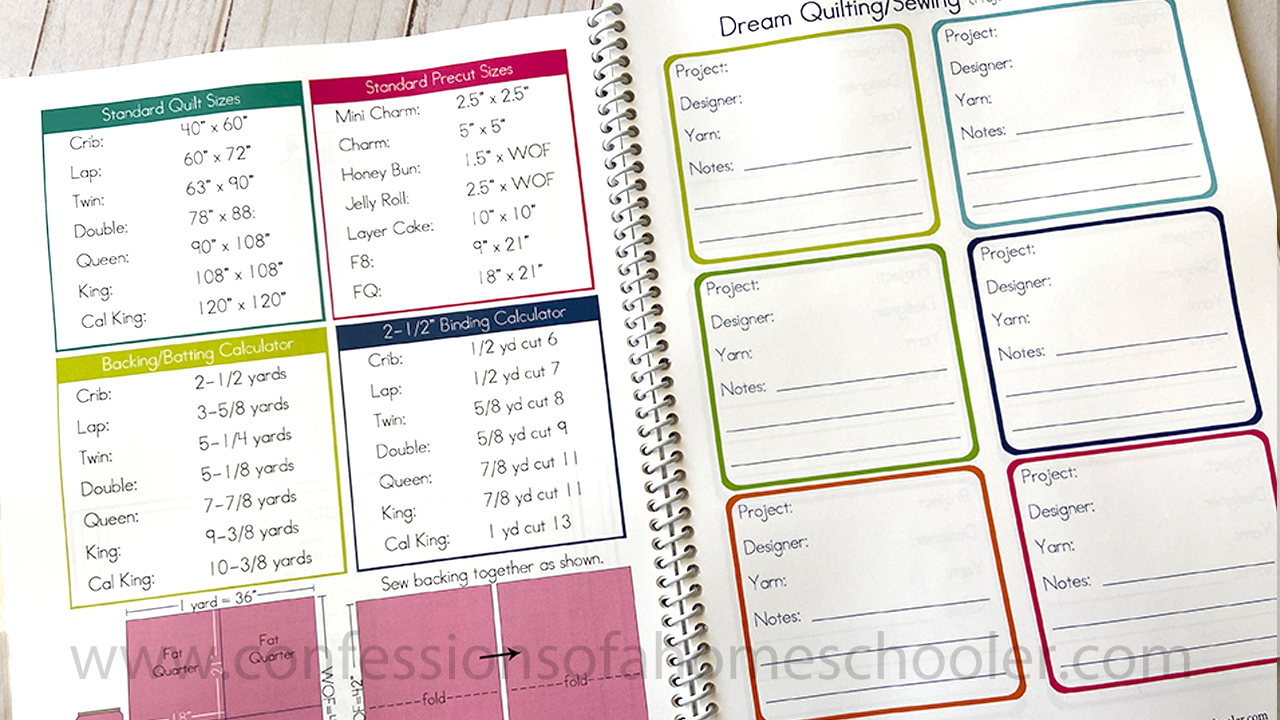 Standard Quilt Sizes
Crib: 40" x 60"
Lap: 60" x 72"
Twin: 63" x 90"
Double: 78" x 88:
Queen: 90" x 108"
King: 108" x 108"
Cal King: 120" x 120"
Standard Precut Sizes
Mini Charm: 2.5" x 2.5"
Charm: 5" x 5"
Honey Bun: 1.5" x WOF
Jelly Roll: 2.5" x WOF
Layer Cake: 10" x 10"
F8: 9" x 21"
FQ: 18" x 21"
Backing/Batting Calculator
Crib: 2-1/2 yards
Lap: 3-5/8 yards
Twin: 5-1/4 yards
Double: 5-1/8 yards
Queen: 7-7/8 yards
King: 9-3/8 yards
Cal King: 10-3/8 yards
2-1/2" Binding Calculator
Crib: 1/2 yd cut 6
Lap: 1/2 yd cut 7
Twin: 5/8 yd cut 8
Double: 5/8 yd cut 9
Queen: 7/8 yd cut 11
King: 7/8 yd cut 11
Cal King: 1 yd cut 13
1 yard = 36"
Fat Quarter
Fat Quarter
18"
Sew backing together as shown.
fold
fold
Dream Quilting/Sewing
Project:
Designer:
Yarn:
Notes:
Project:
Designer:
Yarn:
Notes:
Project:
Designer:
Yarn:
Notes:
Project:
Designer:
Yarn:
Notes:
Project:
Designer:
Yarn:
Notes:
Project:
Designer:
Yarn:
Notes:
www.confessionsofahomeschooler.com